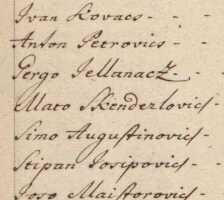 Ivan Kovacs - -
Anton Petrovics - -
Gergo Jellanacz - -
Mato Skenderlovics -
Simo Augustinovics -
Stipan Josipovics - -
Joso Maistorovics -